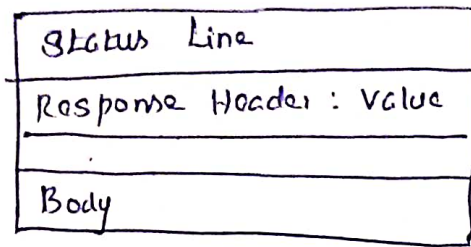 Status Line
Response Header : Value
Body